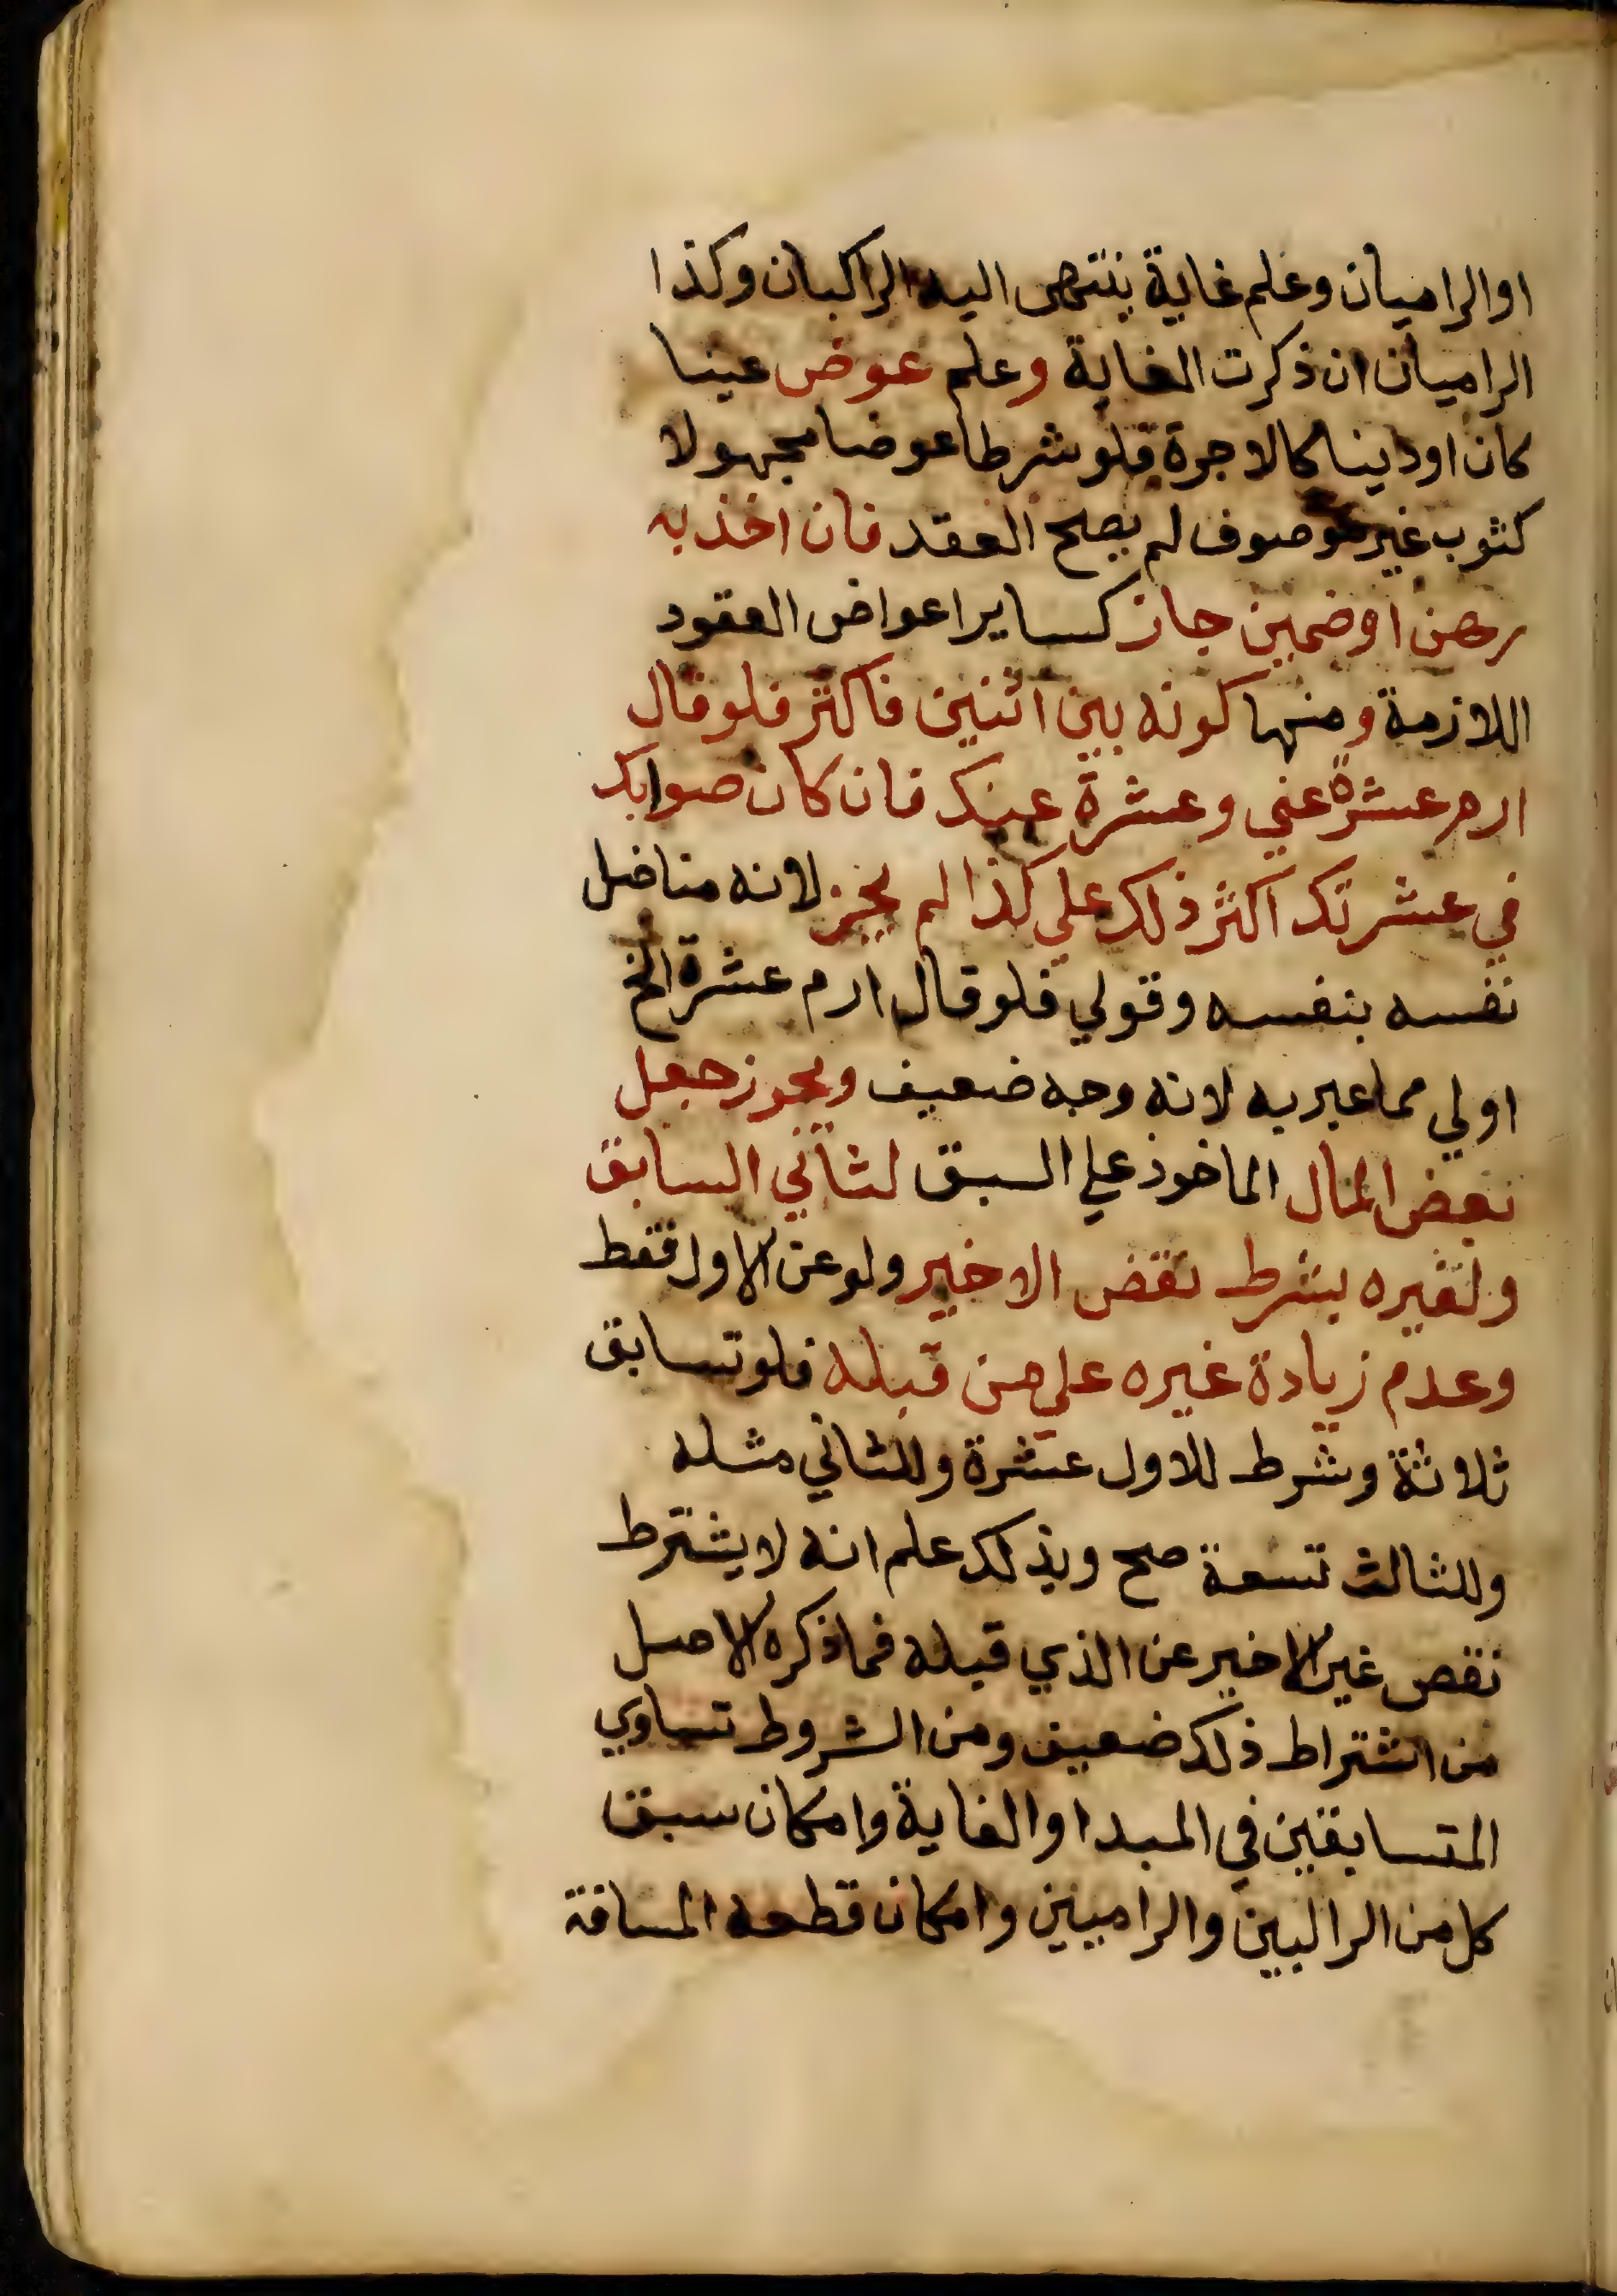 او الراميان وعلم غاية ينتهى اليه الراكبان وكذا
الراميان ان ذكرت الغاية وعلم عوض عينا
كان او دينا كالاجرة فلو شرطا عوضا مجهولا
كثوب غير موصوف لم يصح العقد فان اخذ به
رهن او ضمين جاز كساير اعواض العقود
اللازمة ومنها كونه بين اثنين فاكثر فلو قال
ارم عشرة عني وعشرة عنك فان كان صوابك
في عشرتك اكثر ذلك علي كذا لم يجز لانه مناضل
نفسه بنفسه وقولي فلو قال ارم عشرة الخ
اولي مما عبر به لانه وجه ضعيف ويجوز جعل
بعض المال الماخوذ علي السبق لثاني السابق
ولغيره بشرط نقض الاخير ولو عن الاول فقط
وعدم زيادة غيره علي من قبله فلو تسابق
ثلاثة وشرط للاول عشرة وللثاني مثله
وللثالث تسعة صح وبذلك علم انه لا يشترط
نقص غير الاخير عن الذي قبله فما ذكره الاصل
من اشتراط ذلك ضعيف ومن الشروط تساوي
المتسابقين في المبدا والغاية وامكان سبق
كل من الراكبين والراميين وامكان قطعه المسافة